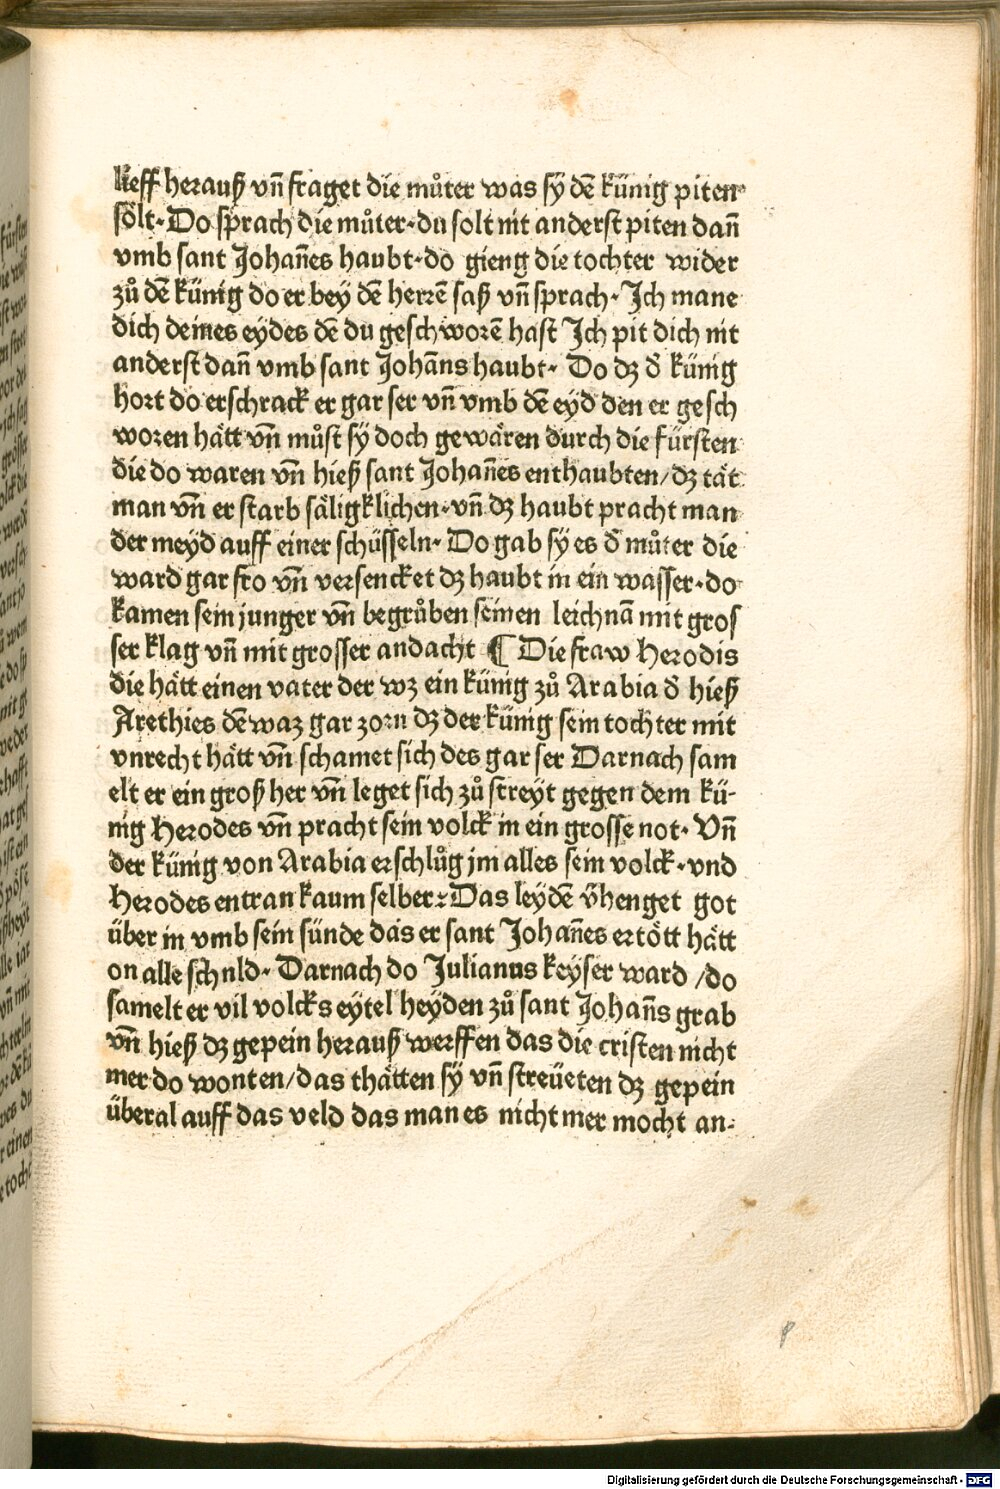 lieff herauß vñ fraget die můter was sÿ dē künig piten
sölt· Do sprach die můter·du solt nit anderst piten dañ
vmb sant Johañes haubt·do gieng die tochter wider
zů dē künig do er bey dē herrē saß vñ sprach· Ich mane
dich deines eydes dē du geschworē hast Ich pit dich nit
anderst dañ vmb sant Johāns haubt· Do dꝫ d̄ künig
hort do erschrack er gar ser vñ vmb dē eyd den er gesch
woren hätt vñ můst sÿ doch gewären durch die fürsten
die do waren vñ hieß sant Johañes enthaubten/dꝫ tät
man vñ er starb säligklichen·vñ dꝫ haubt pracht man
der meyd auff einer schüsseln· Do gab sÿ es d̄ můter die
ward gar fro vñ versencket dꝫ haubt in ein wasser·do
kamen sein junger vñ begrůben seinen leichnā mit gros
ser klag vñ mit grosser andacht ¶ Die fraw Herodis
die hätt einen vater der wꝫ ein künig zů Arabia d̄ hieß
Arethies dē waz gar zorn dꝫ der künig sein tochter mit
vnrecht hätt vñ schamet sich des gar ser Darnach sam
elt er ein groß her vñ leget sich zů streyt gegen dem kü-
nig Herodes vñ pracht sein volck in ein grosse not· Vñ
der künig von Arabia erschlůg jm alles sein volck·vnd
Herodes entran kaum selber: Das leydē v̄henget got
über in vmb sein sünde das er sant Johañes ertött hätt
on alle schnld· Darnach do Julianus keyser ward /do
samelt er vil volcks eytel heyden zů sant Johañs grab
vñ hieß dꝫ gepein herauß werffen das die cristen nicht
mer do wonten/das thätten sÿ vñ streüeten dꝫ gepein
überal auff das veld das man es nicht mer mocht an-
Digitalisierung gefördert durch die Deutsche Forschungsgemeinschaft - DFG